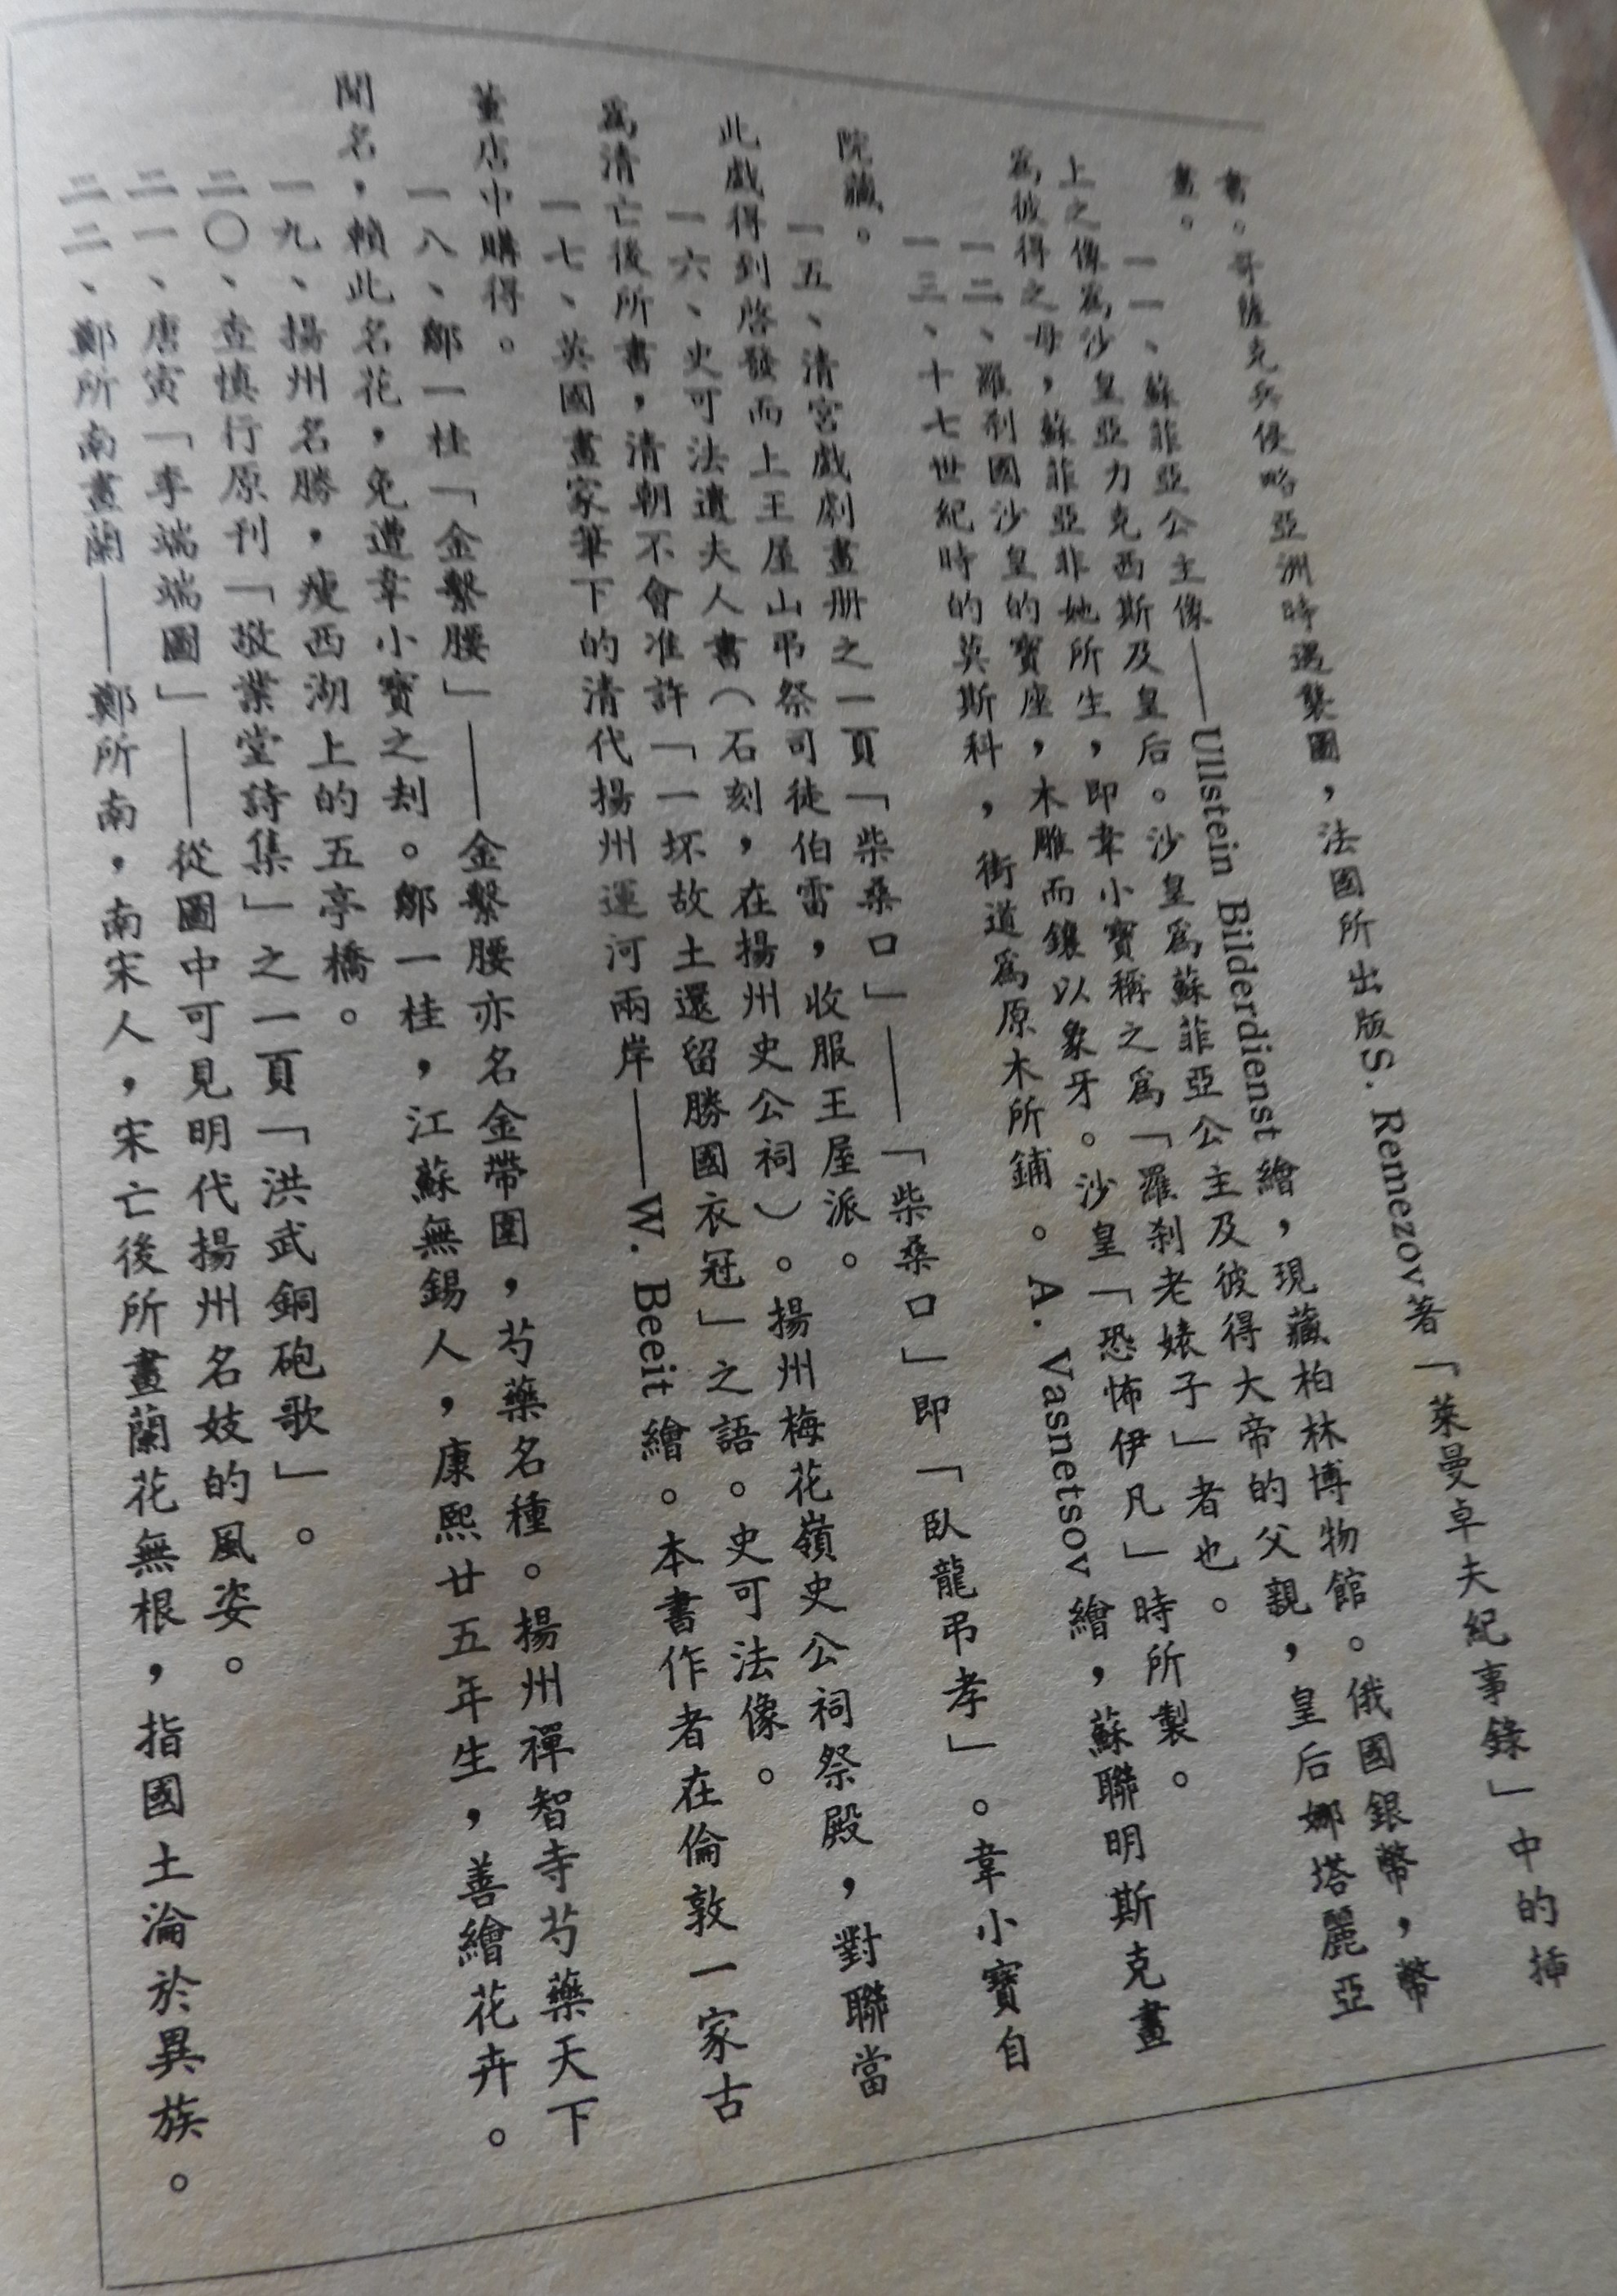 書。哥薩克兵侵略亞洲時遇襲圖，法國所出版S. Remezov著「萊曼卓夫紀事錄」中的插
畫。
一一、蘇菲亞公主像——Ullstein Bilderdienst繪，現藏柏林博物館。俄國銀幣，幣
上之像爲沙皇亞力克西斯及皇后。沙皇爲蘇菲亞公主及彼得大帝的父親，皇后娜塔麗亞
爲彼得之母，蘇菲亞非她所生，即韋小寶稱之爲「羅刹老婊子」者也。
一二、羅刹國沙皇的寶座，木雕而鑲以象牙。沙皇「恐怖伊凡」時所製。
一三、十七世紀時的莫斯科，街道爲原木所鋪。A. Vasnetsov繪，蘇聯明斯克畫
院藏。
一五、清宮戲劇畫册之一頁「柴桑口」——「柴桑口」即「臥龍弔孝」。韋小寶自
此戲得到啓發而上王屋山弔祭司徒伯雷，收服王屋派。
一六、史可法遺夫人書（石刻，在揚州史公祠）。揚州梅花嶺史公祠祭殿，對聯當
爲清亡後所書，清朝不會准許「一坏故土還留勝國衣冠」之語。史可法像。
一七、英國畫家筆下的清代揚州運河兩岸——W. Beeit繪。本書作者在倫敦一家古
董店中購得。
一八、鄒一桂「金繫腰」——金繫腰亦名金帶圍，芍藥名種。揚州禪智寺芍藥天下
聞名，賴此名花，免遭韋小寶之刦。鄒一桂，江蘇無錫人，康熙廿五年生，善繪花卉。
一九、揚州名勝，瘦西湖上的五亭橋。
二〇、查慎行原刊「敬業堂詩集」之一頁「洪武銅砲歌」。
二一、唐寅「李端端圖」——從圖中可見明代揚州名妓的風姿。
二二、鄭所南畫蘭——鄭所南，南宋人，宋亡後所畫蘭花無根，指國土淪於異族。